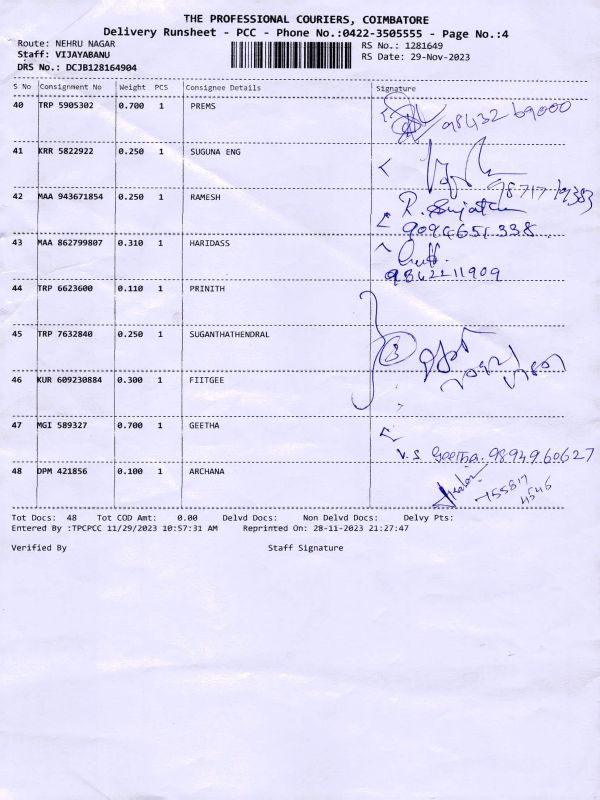 THE PROFESSIONAL COURIERS, COIMBATORE
Delivery Runsheet - PCC - Phone No.:0422-3505555 - Page No.:4
Route: NEHRU NAGAR RS No.: 1281649
Staff: VIJAYABANU RS Date: 29-Nov-2023
DRS No.: DCJB128164904
S No Consignment No Weight PCS Consignee Details Signature
40 TRP 5905302 0.700 1 PREMS
98432 69000
41 KRR 5822922 0.250 1 SUGUNA ENG
42 MAA 943671854 0.250 1 RAMESH
R.
9094651338
43 MAA 862799807 0.310 1 HARIDASS
9842211909
44 TRP 6623600 0.110 1 PRINITH
45 TRP 7632840 0.250 1 SUGANTHATHENDRAL
3
46 KUR 609230884 0.300 1 FIITGEE
47 MGI 589327 0.700 1 GEETHA
V.S Geetha. 9894960627
48 DPM 421856 0.100 1 ARCHANA
755817
4546
Tot Docs: 48 Tot COD Amt: 0.00 Delvd Docs: Non Delvd Docs: Delvy Pts:
Entered By :TPCPCC 11/29/2023 10:57:31 AM Reprinted On: 28-11-2023 21:27:47
Verified By Staff Signature